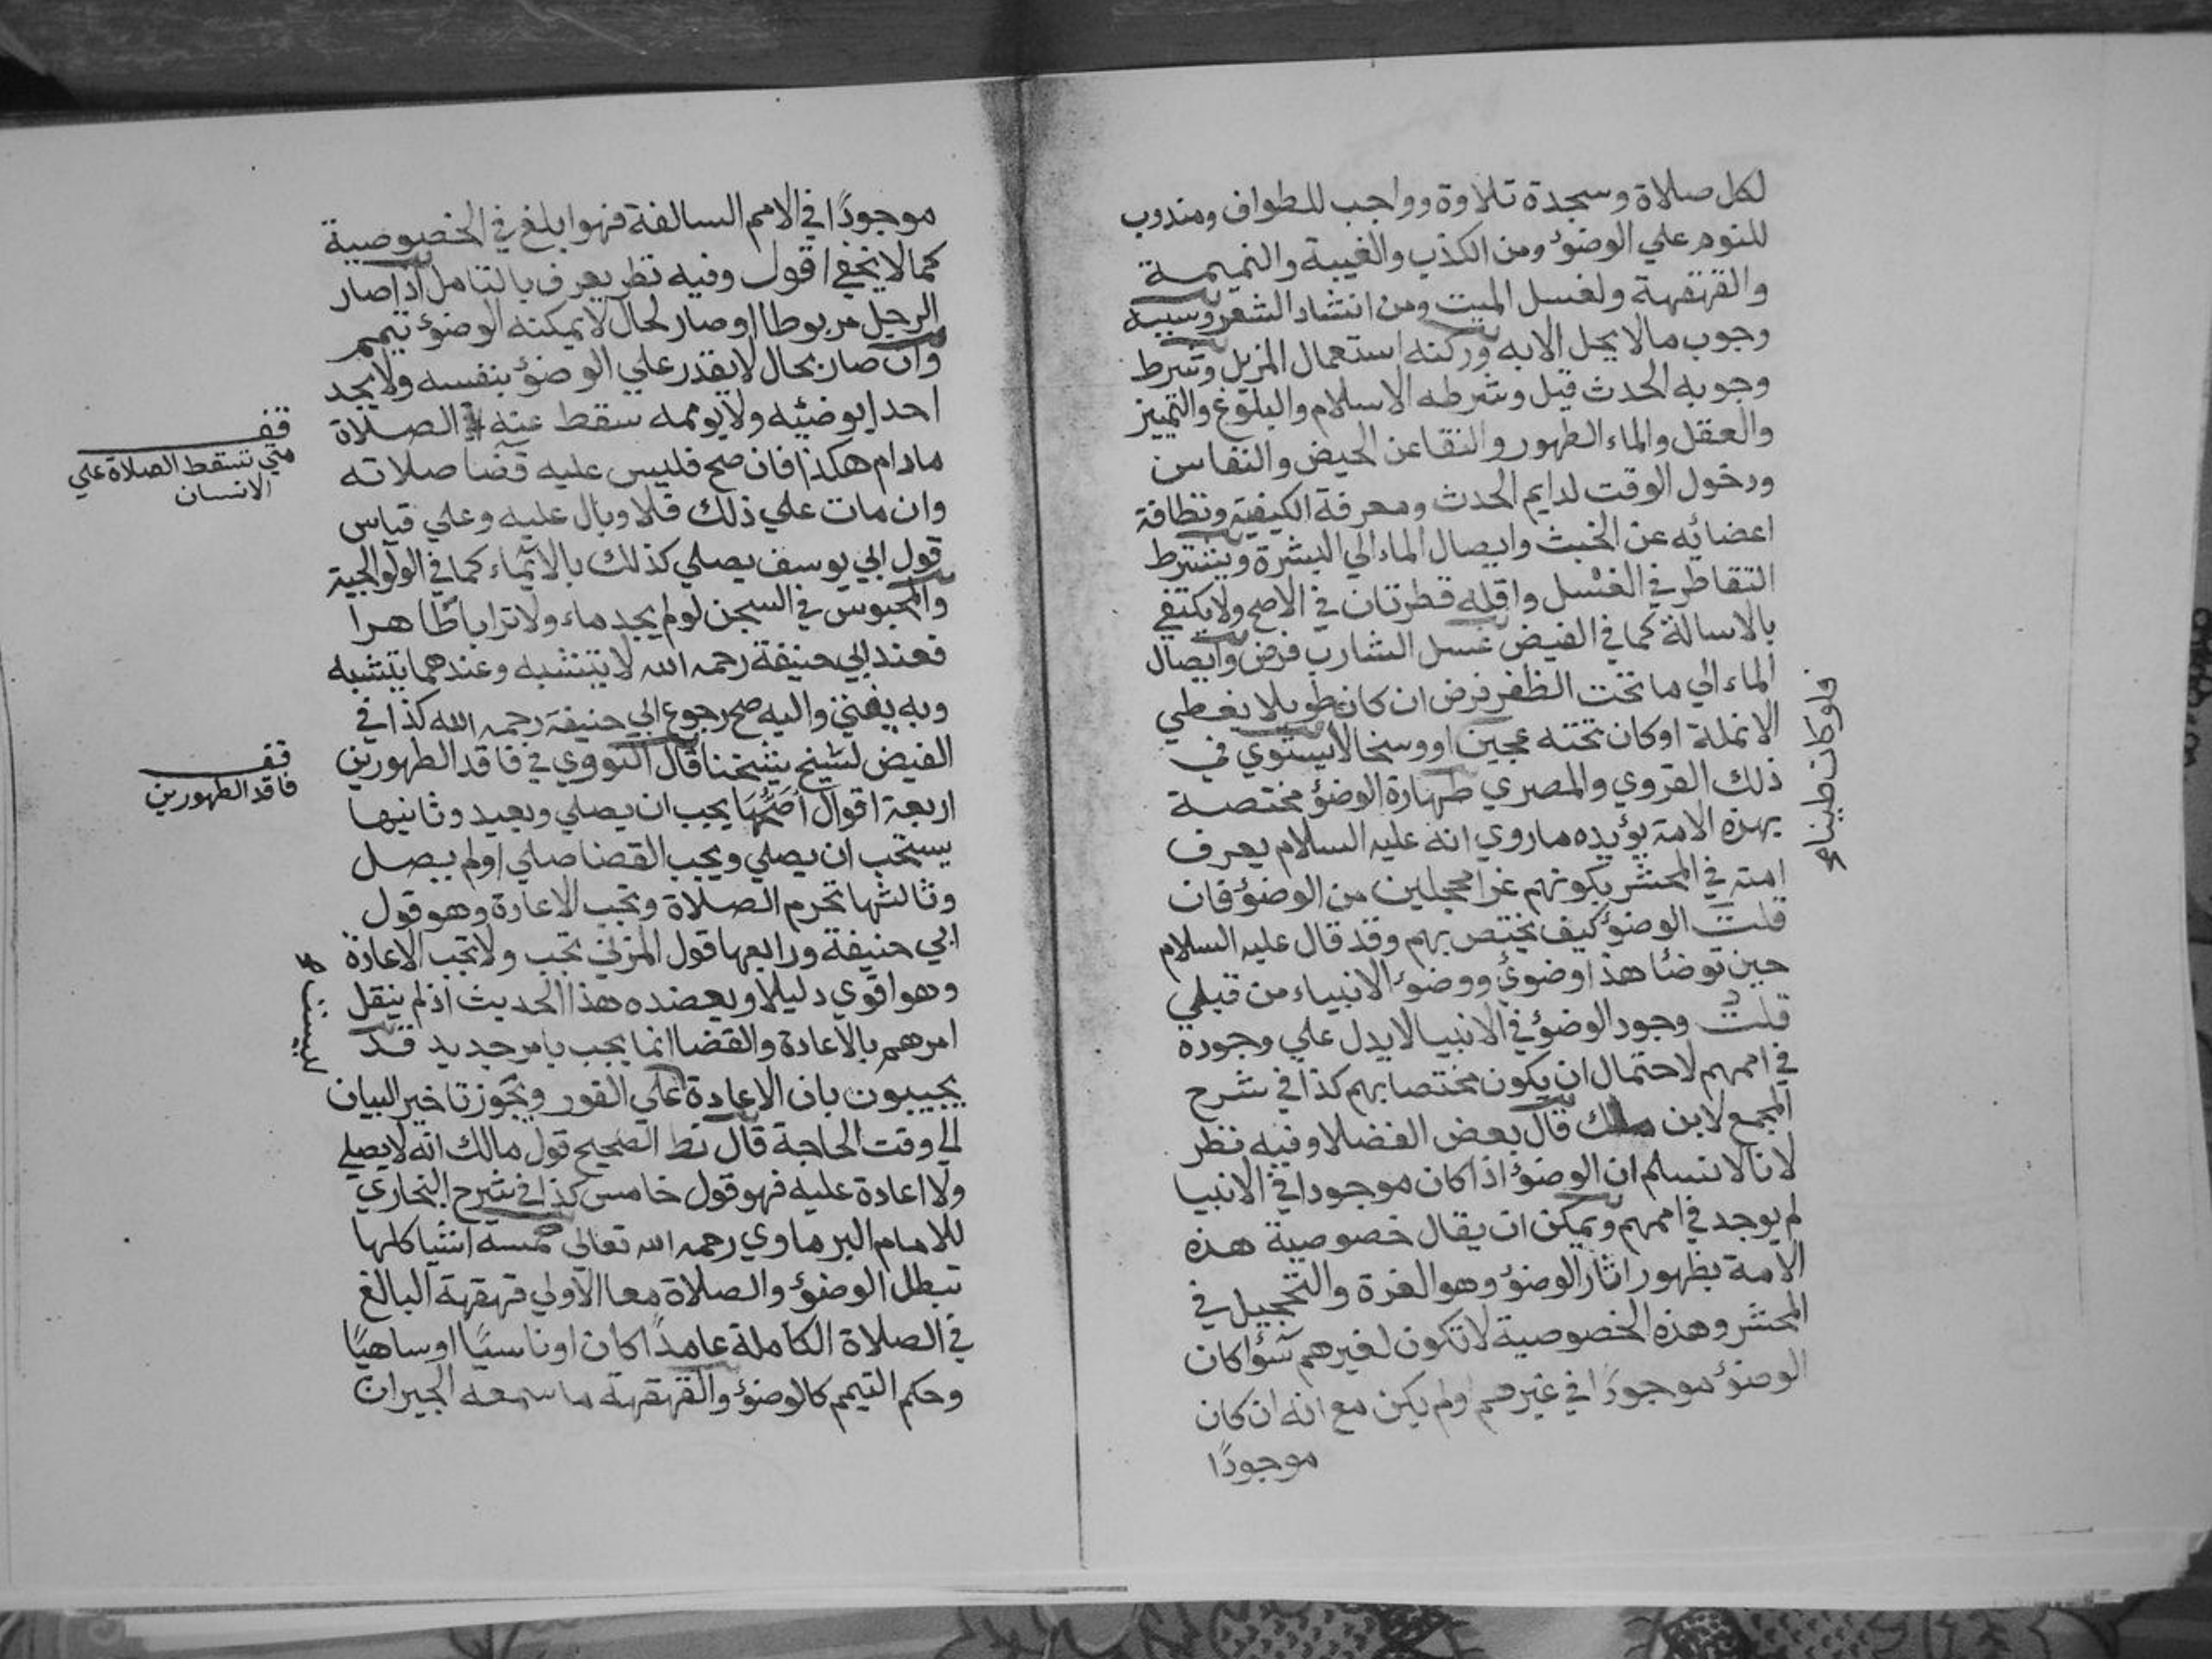 لكل صلاة وسجدة تلاوة وواجب للطواف ومندوب
للنوم علي الوضوٴ ومن الكذب والغيبة والنميمة
والقهقهة ولغسل الميت ومن انشاد الشعر وسببه
وجوب مالا يحل الابه وركنه استعمال المزيل وشرط
وجوبه الحدث قيل وشرطه الاسلام والبلوغ والتمييز
والعقل والماء الطهور والنقا عن الحيض والنفاس
ودخول الوقت لدايم الحدث ومعرفة الكيفية ونظافة
اعضائه عن الخبث وايصال الماء الي البشرة ويشترط
التقاطر في الغسل واقله قطرتان في الاصح ولا يكتفي
بالاسالة كما في الفيض غسل الشارب فرض وايصال
الماء الي ما تحت الظفر فرض ان كان طويلا يغطي
الانملة اوكان تحته عجين او وسخا لا يستوي في
ذلك القروي والمصري طهارة الوضؤ مختصة
بهذه الامة يؤيده ماروي انه عليه السلام يعرف
امته في المحشر بكونهم غرا محجلين من الوضؤ فان
قلت الوضؤ كيف يختص بهم وقد قال عليه السلام
حين توضئا هذا وضوئ ووضوٴ الانبياء من قبلي
قلت وجود الوضؤ في الانبيا لا يدل علي وجوده
في اممهم لاحتمال ان يكون مختصا بهم كذا في شرح
المجمع لابن ملك قال بعض الفضلا وفيه نظر
لانا لا نسلم ان الوضؤ اذا كان موجودا في الانبيا
لم يوجد في اممهم ويمكن ان يقال خصوصية هذه
الامة بظهور اثار الوضؤ وهو الغرة والتحجيل في
المحشر وهذه الخصوصية لا تكون لغيرهم سؤا كان
الوضؤ موجودًا في غيرهم اولم يكن مع انه ان كان
موجودًا
موجودًا في الامم السالفة فهو ابلغ في الخصوصية
كما لا يخفي اقول وفيه نظر يعرف بالتامل اذا صار
الرجل مربوطا او صار لحال لا يمكنه الوضؤ تيمم
وان صار بحال لا يقدر علي الوضؤ بنفسه ولا يجد
احد ايوضئه ولا يوممه سقط عنه الصلاة
مادام هكذا فان صح فليس عليه قضا صلاته
وان مات علي ذلك فلا وبال عليه وعلي قياس
قول ابي يوسف يصلي كذلك بالايماء كما في الولوالجية
والمحبوس في السجن لولم يجد ماء ولا ترابا طاهرا
فعند ابي حنيفة رحمه الله لا يتشبه وعندهما يتشبه
وبه يفتي واليه صح رجوع ابي حنيفة رحمه الله كذا في
الفيض لشيخ شيخنا قال النووي في فاقد الطهورين
اربعة اقوال اصحها يجب ان يصلي ويعيد وثانيها
يستحب ان يصلي ويجب القضا صلي اولم يصل
وثالثها تحرم الصلاة وتجب الاعادة وهو قول
ابي حنيفة ورابعها قول المزني تجب ولا تجب الاعادة
وهو اقوي دليلا ويعضده هذا الحديث اذ لم ينقل
امرهم بالاعادة والقضا انما يجب بامر جديد قد
يجيبون بان الاعادة علي الفور ويجوز تاخير البيان
الي وقت الحاجة قال نط الصحيح قول مالك انه لا يصلي
ولا اعادة عليه فهو قول خامس كذا في شرح البخاري
للامام البرماوي رحمه الله تعالي خمسة اشيا كلها
تبطل الوضؤ والصلاة معا الاولي قهقهة البالغ
في الصلاة الكاملة عامدًا كان اوناسيًا اوساهيًا
وحكم التيمم كالوضؤ والقهقهة ما سمعه الجيران
قف
متي تسقط الصلاة علي
الانسان
قف
فاقد الطهورين